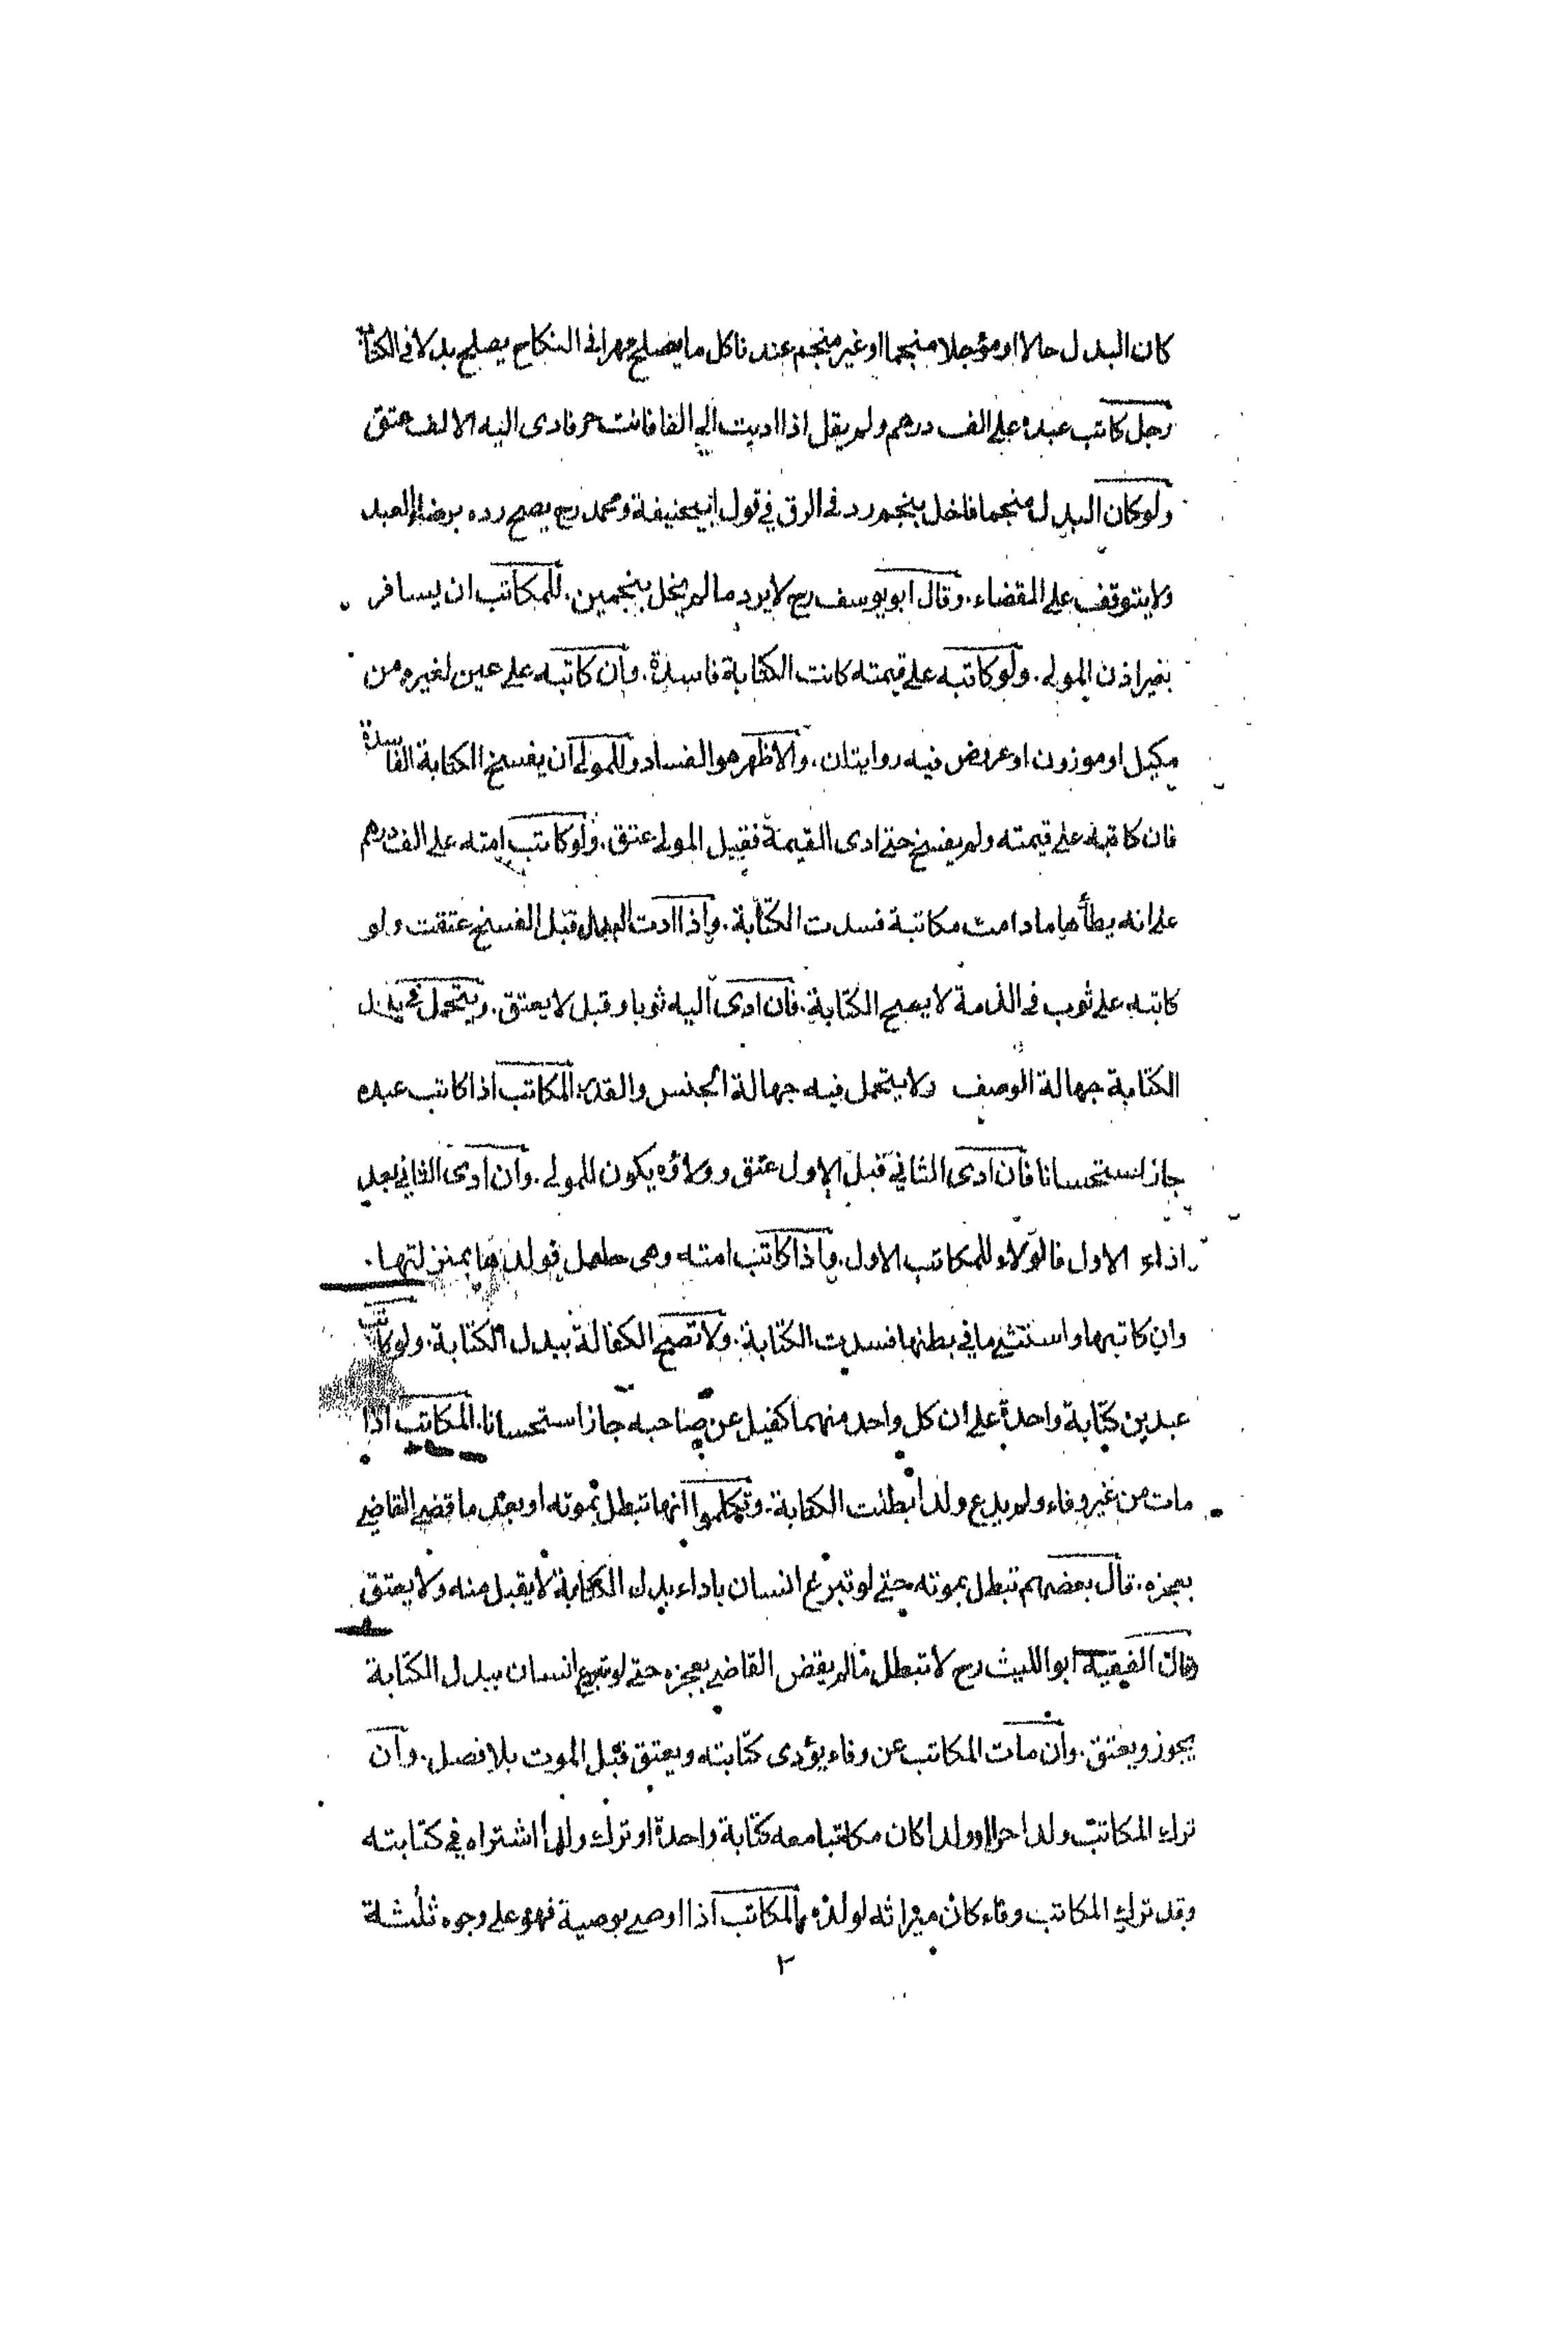 كان البدل حالا او مؤجلا منجما او غير منجم عندنا كل ما يصلح مهرا فى النكاح يصلح بدلا فى الكتابة
رجل كاتب عبده على الف درهم ولم يقل اذا اديت الى الفا فانت حر فادى اليه الالف عتق
ولو كان البدل منجما فاخل بنجم رد فى الرق في قول ابيحنيفة ومحمد رح يصح رده برضاء العبد
ولا يتوقف على القضاء. وقال ابو يوسف رح لا يرد ما لم يخل بنجمين. للمكاتب ان يسافر
بغير اذن المولى. ولو كاتبه على قيمته كانت الكتابة فاسدة. وان كاتبه على عين لغيره من
مكيل او موزون او عروض فيه روايتان. والاظهر هو الفساد وللمولى ان يفسخ الكتابة الفاسدة
فان كاتبه على قيمته ولم يفسخ حتى ادى القيمة فقبل المولى عتق. ولو كاتب امته على الف درهم
على انه يطأها ما دامت مكاتبة فسدت الكتابة. واذا ادت المال قبل الفسخ عتقت ولو
كاتبه على ثوب فى الذمة لا يصح الكتابة. فان ادى اليه ثوبا وقبل لا يعتق. ويتحمل في بدل
الكتابة جهالة الوصف ولا يتحمل فيه جهالة الجنس والقدر. المكاتب اذا كاتب عبده
جاز استحسانا فان ادى الثاني قبل الاول عتق وولاؤه يكون للمولى. وان ادى الثاني بعد
اداء الاول فالولاء للمكاتب الاول. واذا كاتب امته وهى حامل فولدها بمنزلتها.
وان كاتبها واستثنى ما في بطنها فسدت الكتابة. ولا تصح الكفالة ببدل الكتابة. ولو كاتب
عبدين كتابة واحدة على ان كل واحد منهما كفيل عن صاحبه جاز استحسانا. المكاتب اذا
مات من غير وفاء ولم يدع ولدا بطلت الكتابة. وتكلموا انها تبطل بموته او بعد ما قضى القاضى
بعجزه. قال بعضهم تبطل بموته حتى لو تبرع انسان باداء بدل الكتابة لا يقبل منه ولا يعتق
وقال الفقيه ابو الليث رح لا تبطل ما لم يقض القاضى بعجزه حتى لو تبرع انسان ببدل الكتابة
يجوز ويعتق. وان مات المكاتب عن وفاء يؤدى كتابته ويعتق قبل الموت بلا فصل. وان
ترك المكاتب ولدا حرا او ولدا كان مكاتبا معه كتابة واحدة او ترك ولدا اشتراه في كتابته
وقد ترك المكاتب وفاء كان ميراثه لولده المكاتب اذا اوصى بوصية فهو على وجوه ثلثة
٢